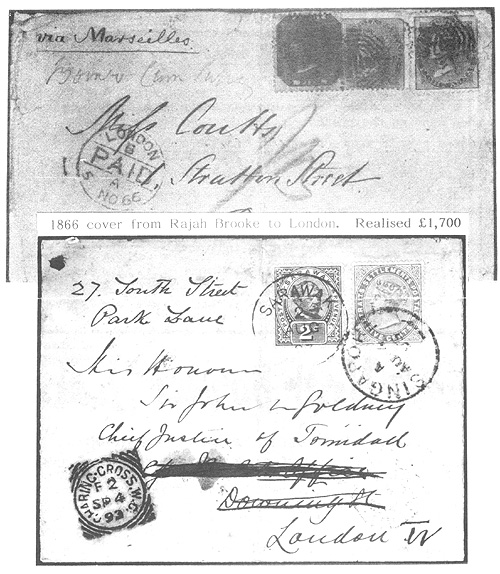 via Marseilles
Miss Coutts
1, Stratton Street
LONDON
PAID
NO 66
1866 cover from Rajah Brooke to London. Realised £1,700
27. South Street
Park Lane
SARAWAK
AUG
2
SINGAPORE
AU
His Honour
Sir John W Goldney
Chief Justice of Trinidad
Downing St
London W
CHARING·CROSS.W.C.
F 2
SP 4
93